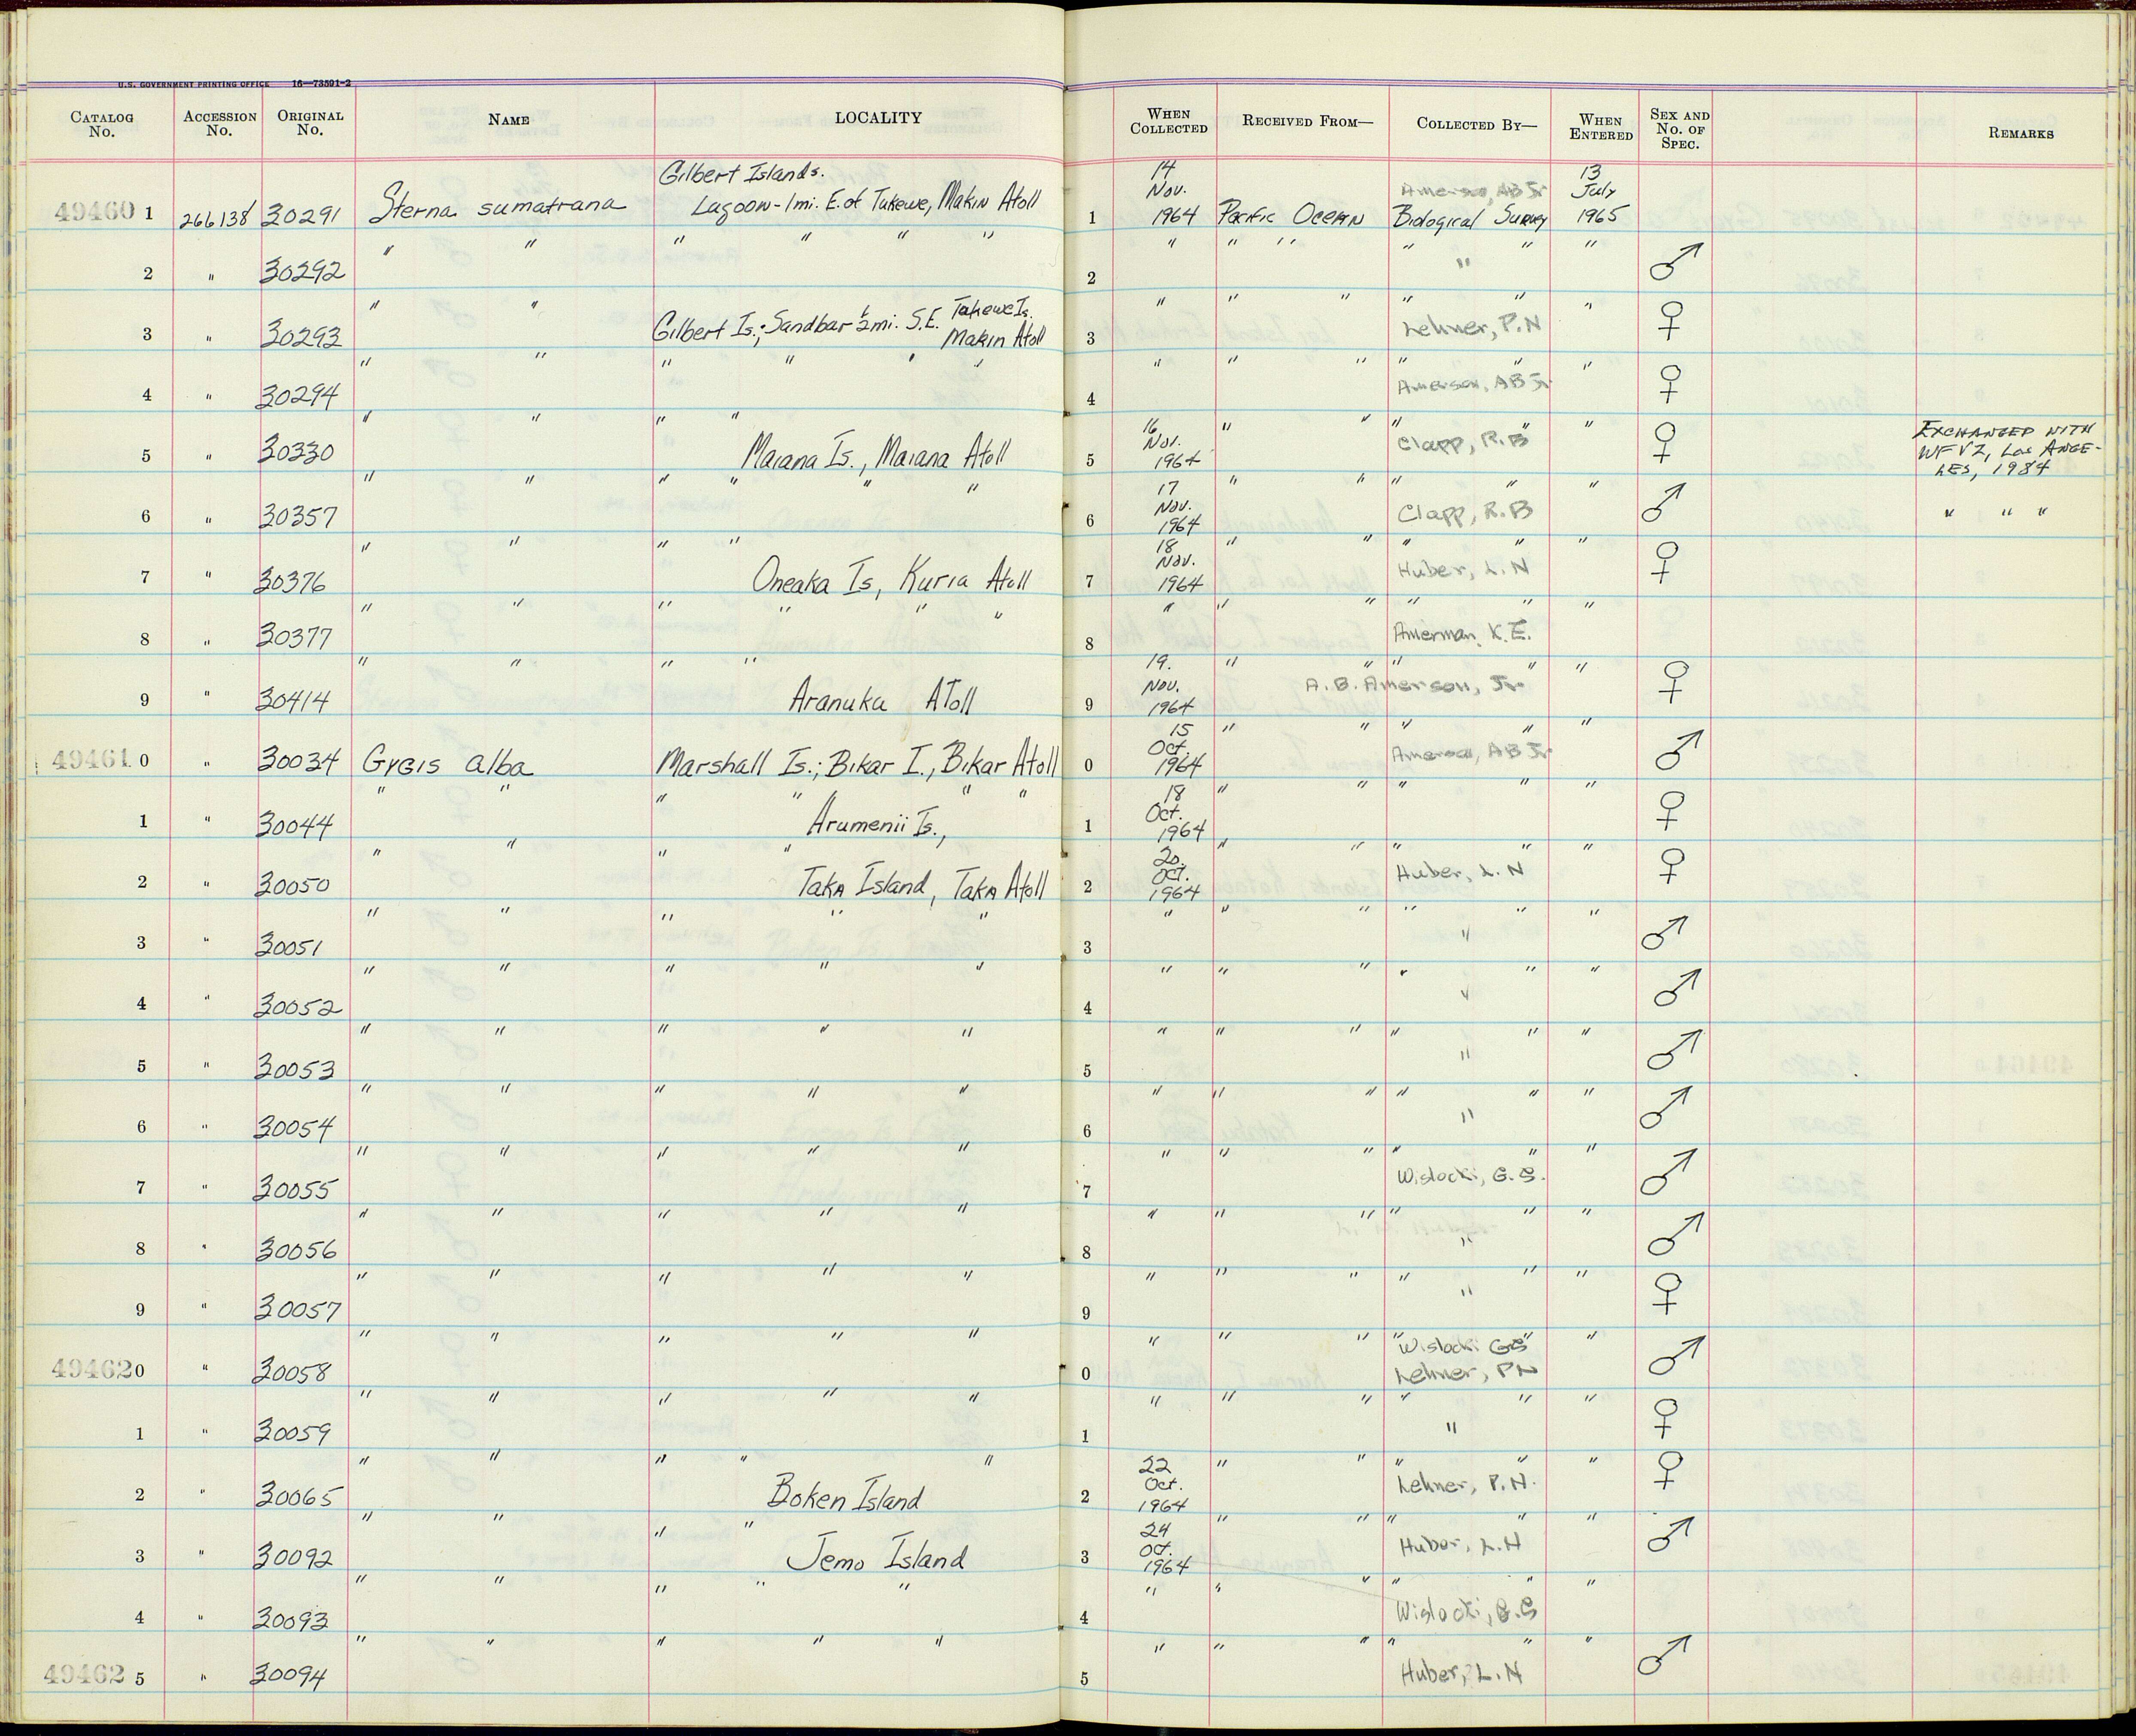 U.S. GOVERNMENT PRINTING OFFICE 16—73591-2
CATALOG No. ACCESSION No. ORIGINAL No. NAME LOCALITY WHEN COLLECTED RECEIVED FROM— COLLECTED BY— WHEN ENTERED SEX AND No. OF SPEC. REMARKS
Gilbert Islands. 14 Nov. Amerson, AB Jr 13 July
49460 1 266138 30291 Sterna sumatrana Lagoon - 1mi. E. of Takewe, Makin Atoll 1 1964 Pacific Ocean Biological Survey 1965
2 " 30292 " " " " " " 2 " " " " " " " ♂
3 " 30293 " " Gilbert Is.; Sandbar ½mi. S.E. Takewe Is. Makin Atoll 3 " " " " " Lehner, P.N " ♀
4 " 30294 " " " " " " 4 " " " " " Amerson, AB Jr " ♀
5 " 30330 " " " " Maiana Is., Maiana Atoll 5 16 Nov. 1964 " " " " Clapp, R.B " ♀ Exchanged with WFVZ, Los Angeles, 1984
6 " 30357 " " " " " " 6 17 Nov. 1964 " " " " Clapp, R.B " ♂ " " "
7 " 30376 " " " " Oneaka Is, Kuria Atoll 7 18 Nov. 1964 " " " " Huber, L.N " ♀
8 " 30377 " " " " " " " 8 " " " " " Amerman, K.E. "
9 " 30414 " " " " Aranuka Atoll 9 19. Nov. 1964 " " " " A.B. Amerson, Jr. " ♀
49461 0 " 30034 Gygis alba Marshall Is.; Bikar I., Bikar Atoll 0 15 Oct. 1964 " " " " Amerson, AB Jr " ♂
1 " 30044 " " " " Arumenii Is., " " 1 18 Oct. 1964 " " " " " ♀
2 " 30050 " " " " Taka Island, Taka Atoll 2 20. Oct. 1964 " " " " Huber, L.N " ♀
3 " 30051 " " " " " 3 " " " " " " " ♂
4 " 30052 " " " " " 4 " " " " " " " ♂
5 " 30053 " " " " " 5 " " " " " " " ♂
6 " 30054 " " " " " 6 " " " " " " " ♂
7 " 30055 " " " " " 7 " " " " " Wislocki, G.S. " ♂
8 " 30056 " " " " " 8 " " " " " " " ♂
9 " 30057 " " " " " 9 " " " " " " " ♀
49462 0 " 30058 " " " " " 0 " " " " " Wislocki GS Lehner, PN " ♂
1 " 30059 " " " " " 1 " " " " " " " ♀
2 " 30065 " " " " " Boken Island 2 22 Oct. 1964 " " " " Lehner, P.N. " ♀
3 " 30092 " " " " Jemo Island 3 24 Oct. 1964 " " " " Huber, L.N " ♂
4 " 30093 " " " " " 4 " " " " " Wislocki, G.S "
49462 5 " 30094 " " " " " 5 " " " " " Huber, L.N " ♂